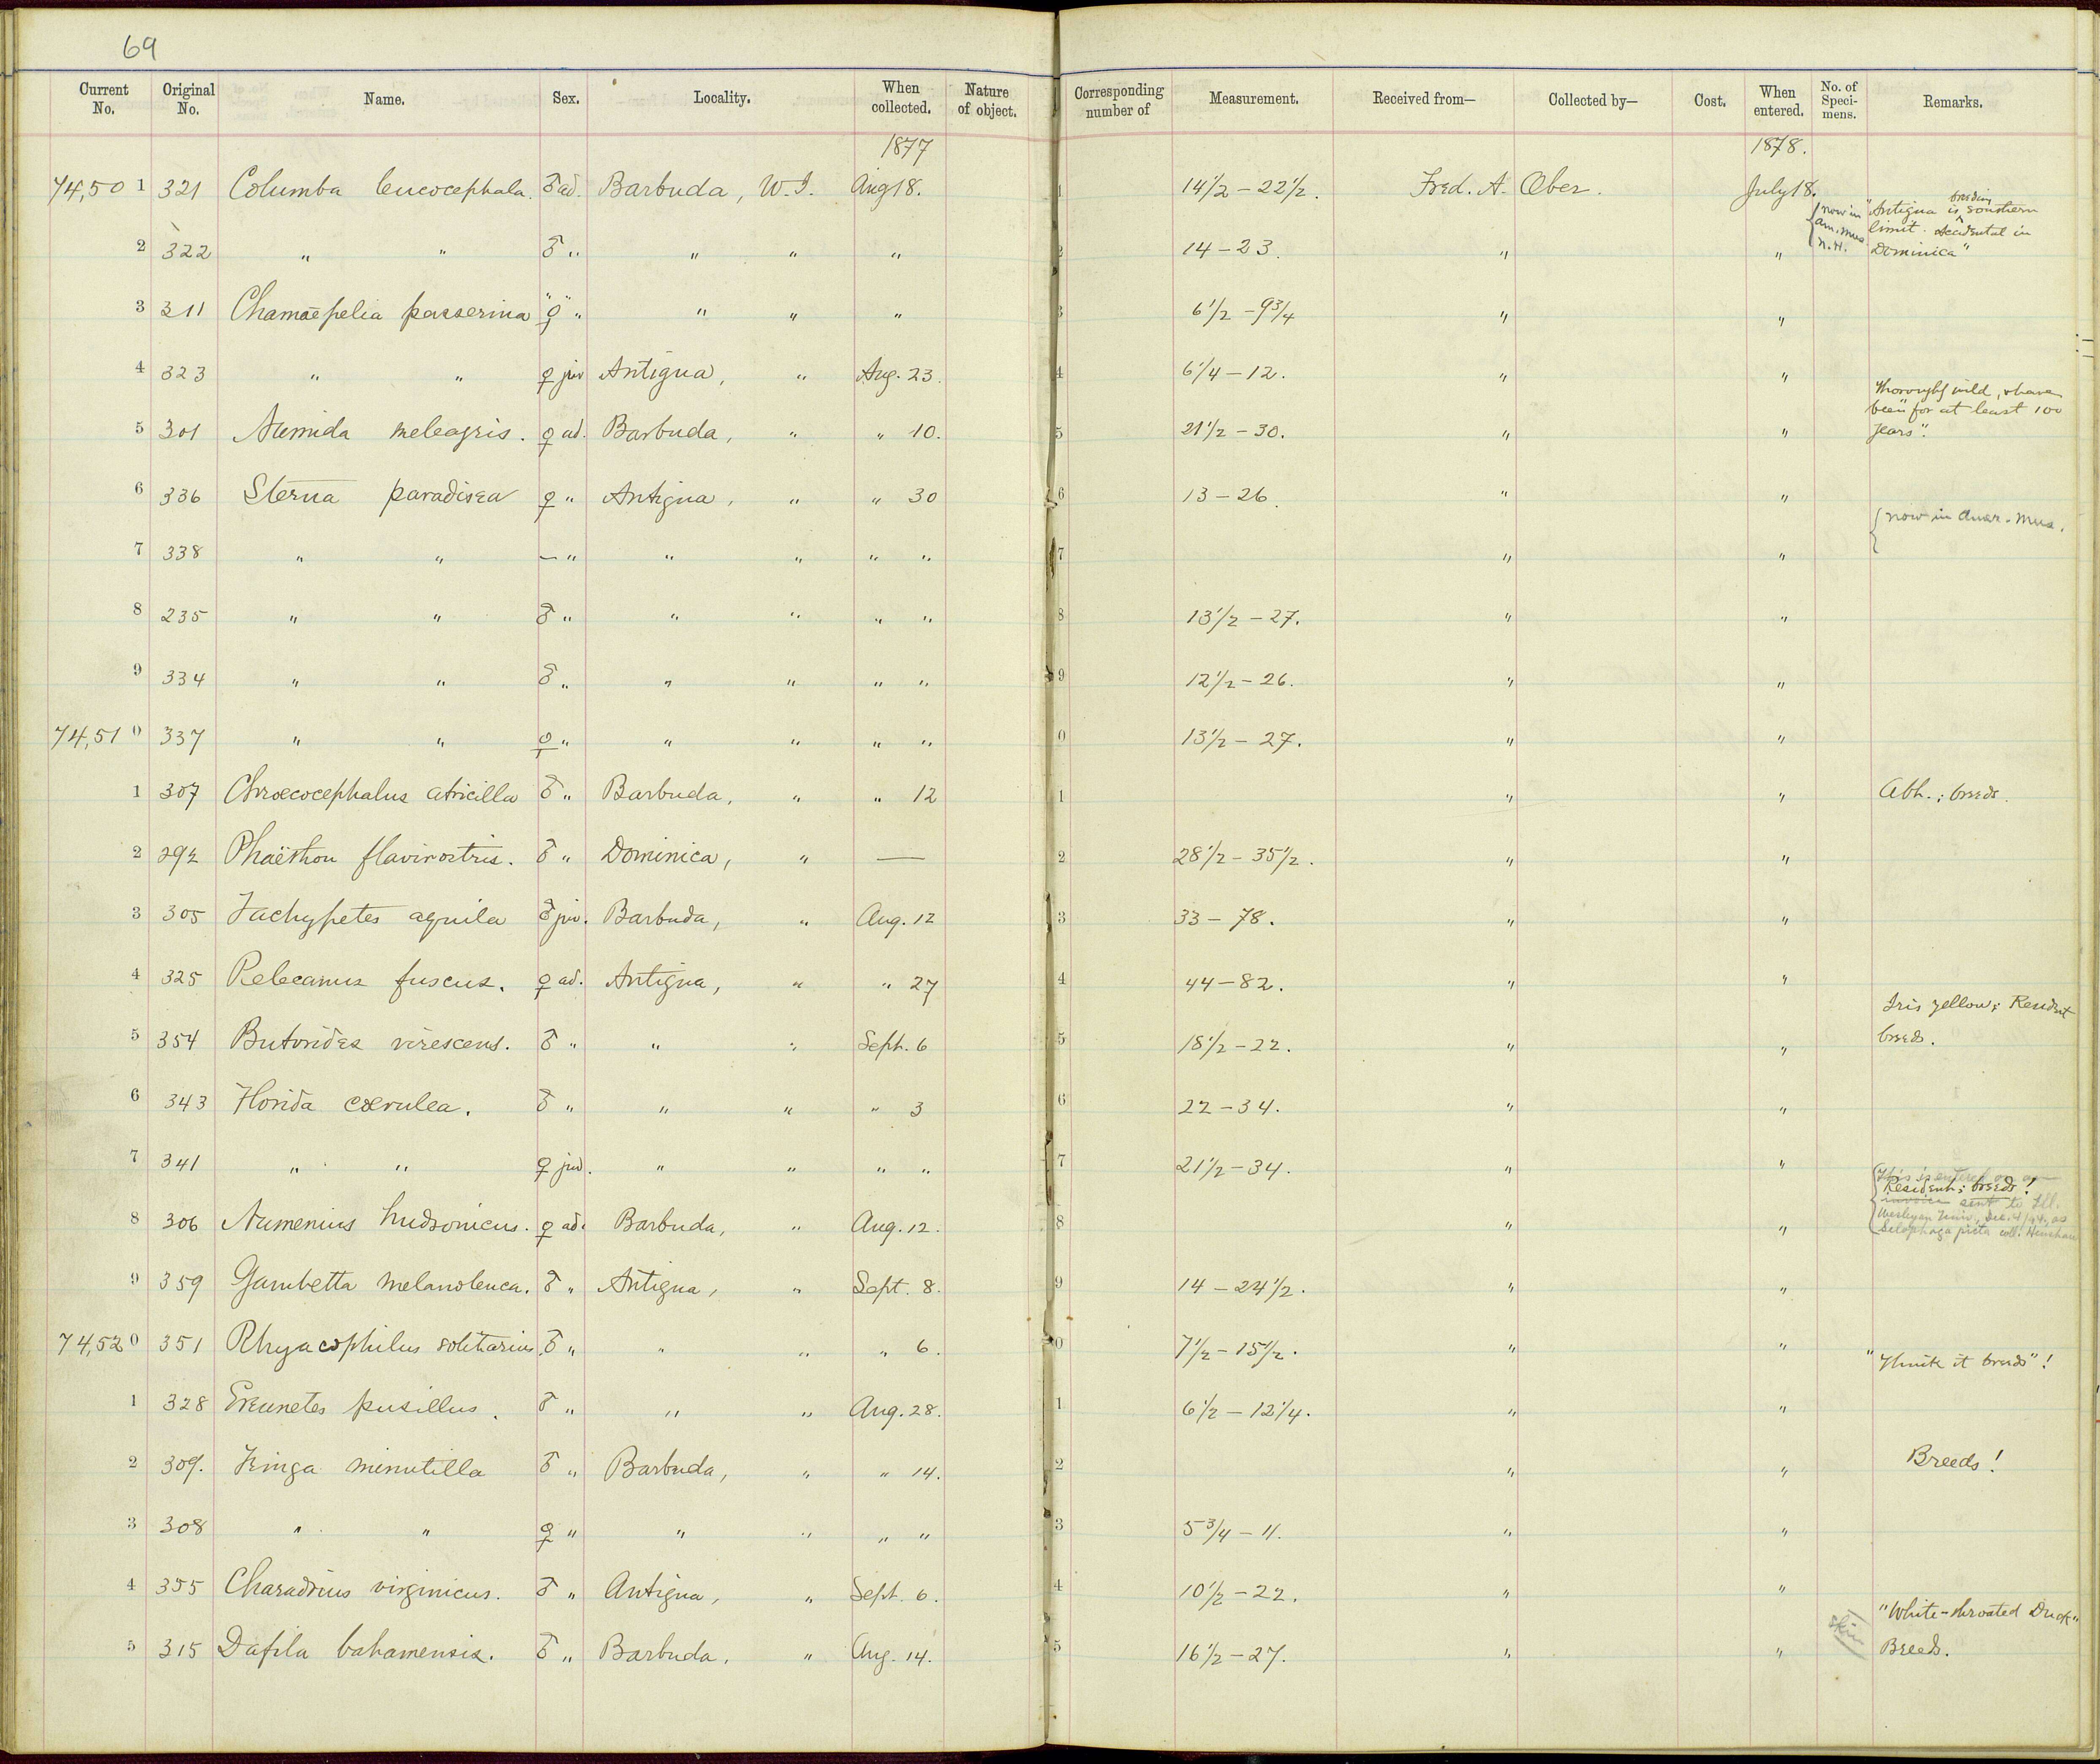 69
Current No. Original No. Name. Sex. Locality. When collected. Nature of object. Corresponding number of Measurement. Received from— Collected by— Cost. When entered. No. of Speci-mens. Remarks.
1877 1878.
74,50 1 321 Columba leucocephala. ♂ ad. Barbuda, W.I. Aug 18. 1 14 1/2 – 22 1/2. Fred. A. Ober. July 18. "Antigua is breeding southern
{ now in Am. Mus. N.H. limit. Accidental in
2 322 " " ♂ " " " " 2 14 – 23. " " Dominica"
3 311 Chamæpelia passerina "♀" " " " " 3 6 1/2 – 9 3/4 " "
4 323 " " ♀ juv Antigua, " Aug. 23. 4 6 1/4 – 12. " "
Thoroughly wild, & have
been "for at least 100
5 301 Numida meleagris. ♀ ad. Barbuda, " " 10. 5 21 1/2 – 30. " " years".
6 336 Sterna paradisea ♀ " Antigua, " " 30 6 13 – 26. " "
{ now in Amer. Mus.
7 338 " " — " " " " " 7 " "
8 235 " " ♂ " " " " " 8 13 1/2 – 27. " "
9 334 " " ♂ " " " " " 9 12 1/2 – 26. " "
74,51 0 337 " " ♀ " " " " " 0 13 1/2 – 27. " "
1 307 Chroecocephalus atricilla ♂ " Barbuda, " " 12 1 " " Abh.; breeds.
2 292 Phaëthon flavirostris. ♂ " Dominica, " — 2 28 1/2 – 35 1/2. " "
3 305 Tachypetes aquila ♂ juv. Barbuda, " Aug. 12 3 33 – 78. " "
4 325 Pelecanus fuscus. ♀ ad. Antigua, " " 27 4 44 – 82. " "
Iris yellow; Resident
5 354 Butorides virescens. ♂ " " " Sept. 6 5 18 1/2 – 22. " " breeds.
6 343 Florida cærulea. ♂ " " " " 3 6 22 – 34. " "
7 341 " " ♀ juv. " " " " 7 21 1/2 – 34. " "
{ This is entered on an
Resident; breeds!
invoice sent to Ill.
8 306 Numenius hudsonicus. ♀ ad. Barbuda, " Aug. 12. 8 " " Wesleyan Univ., Dec. as
Setophaga picta coll. Henshaw
9 359 Gambetta melanoleuca. ♂ " Antigua, " Sept. 8. 9 14 – 24 1/2. " "
74,52 0 351 Rhyacophilus solitarius. ♂ " " " " 6. 0 7 1/2 – 15 1/2. " " "Think it breeds"!
1 328 Ereunetes pusillus. ♂ " " " Aug. 28. 1 6 1/2 – 12 1/4. " "
2 309. Tringa minutilla ♂ " Barbuda, " " 14. 2 " " Breeds!
3 308 " " ♀ " " " " " 3 5 3/4 – 11. " "
4 355 Charadrius virginicus. ♂ " Antigua, " Sept. 6. 4 10 1/2 – 22. " "
"White-throated Duck"
5 315 Dafila bahamensis. ♂ " Barbuda, " Aug. 14. 5 16 1/2 – 27. " " skin Breeds.